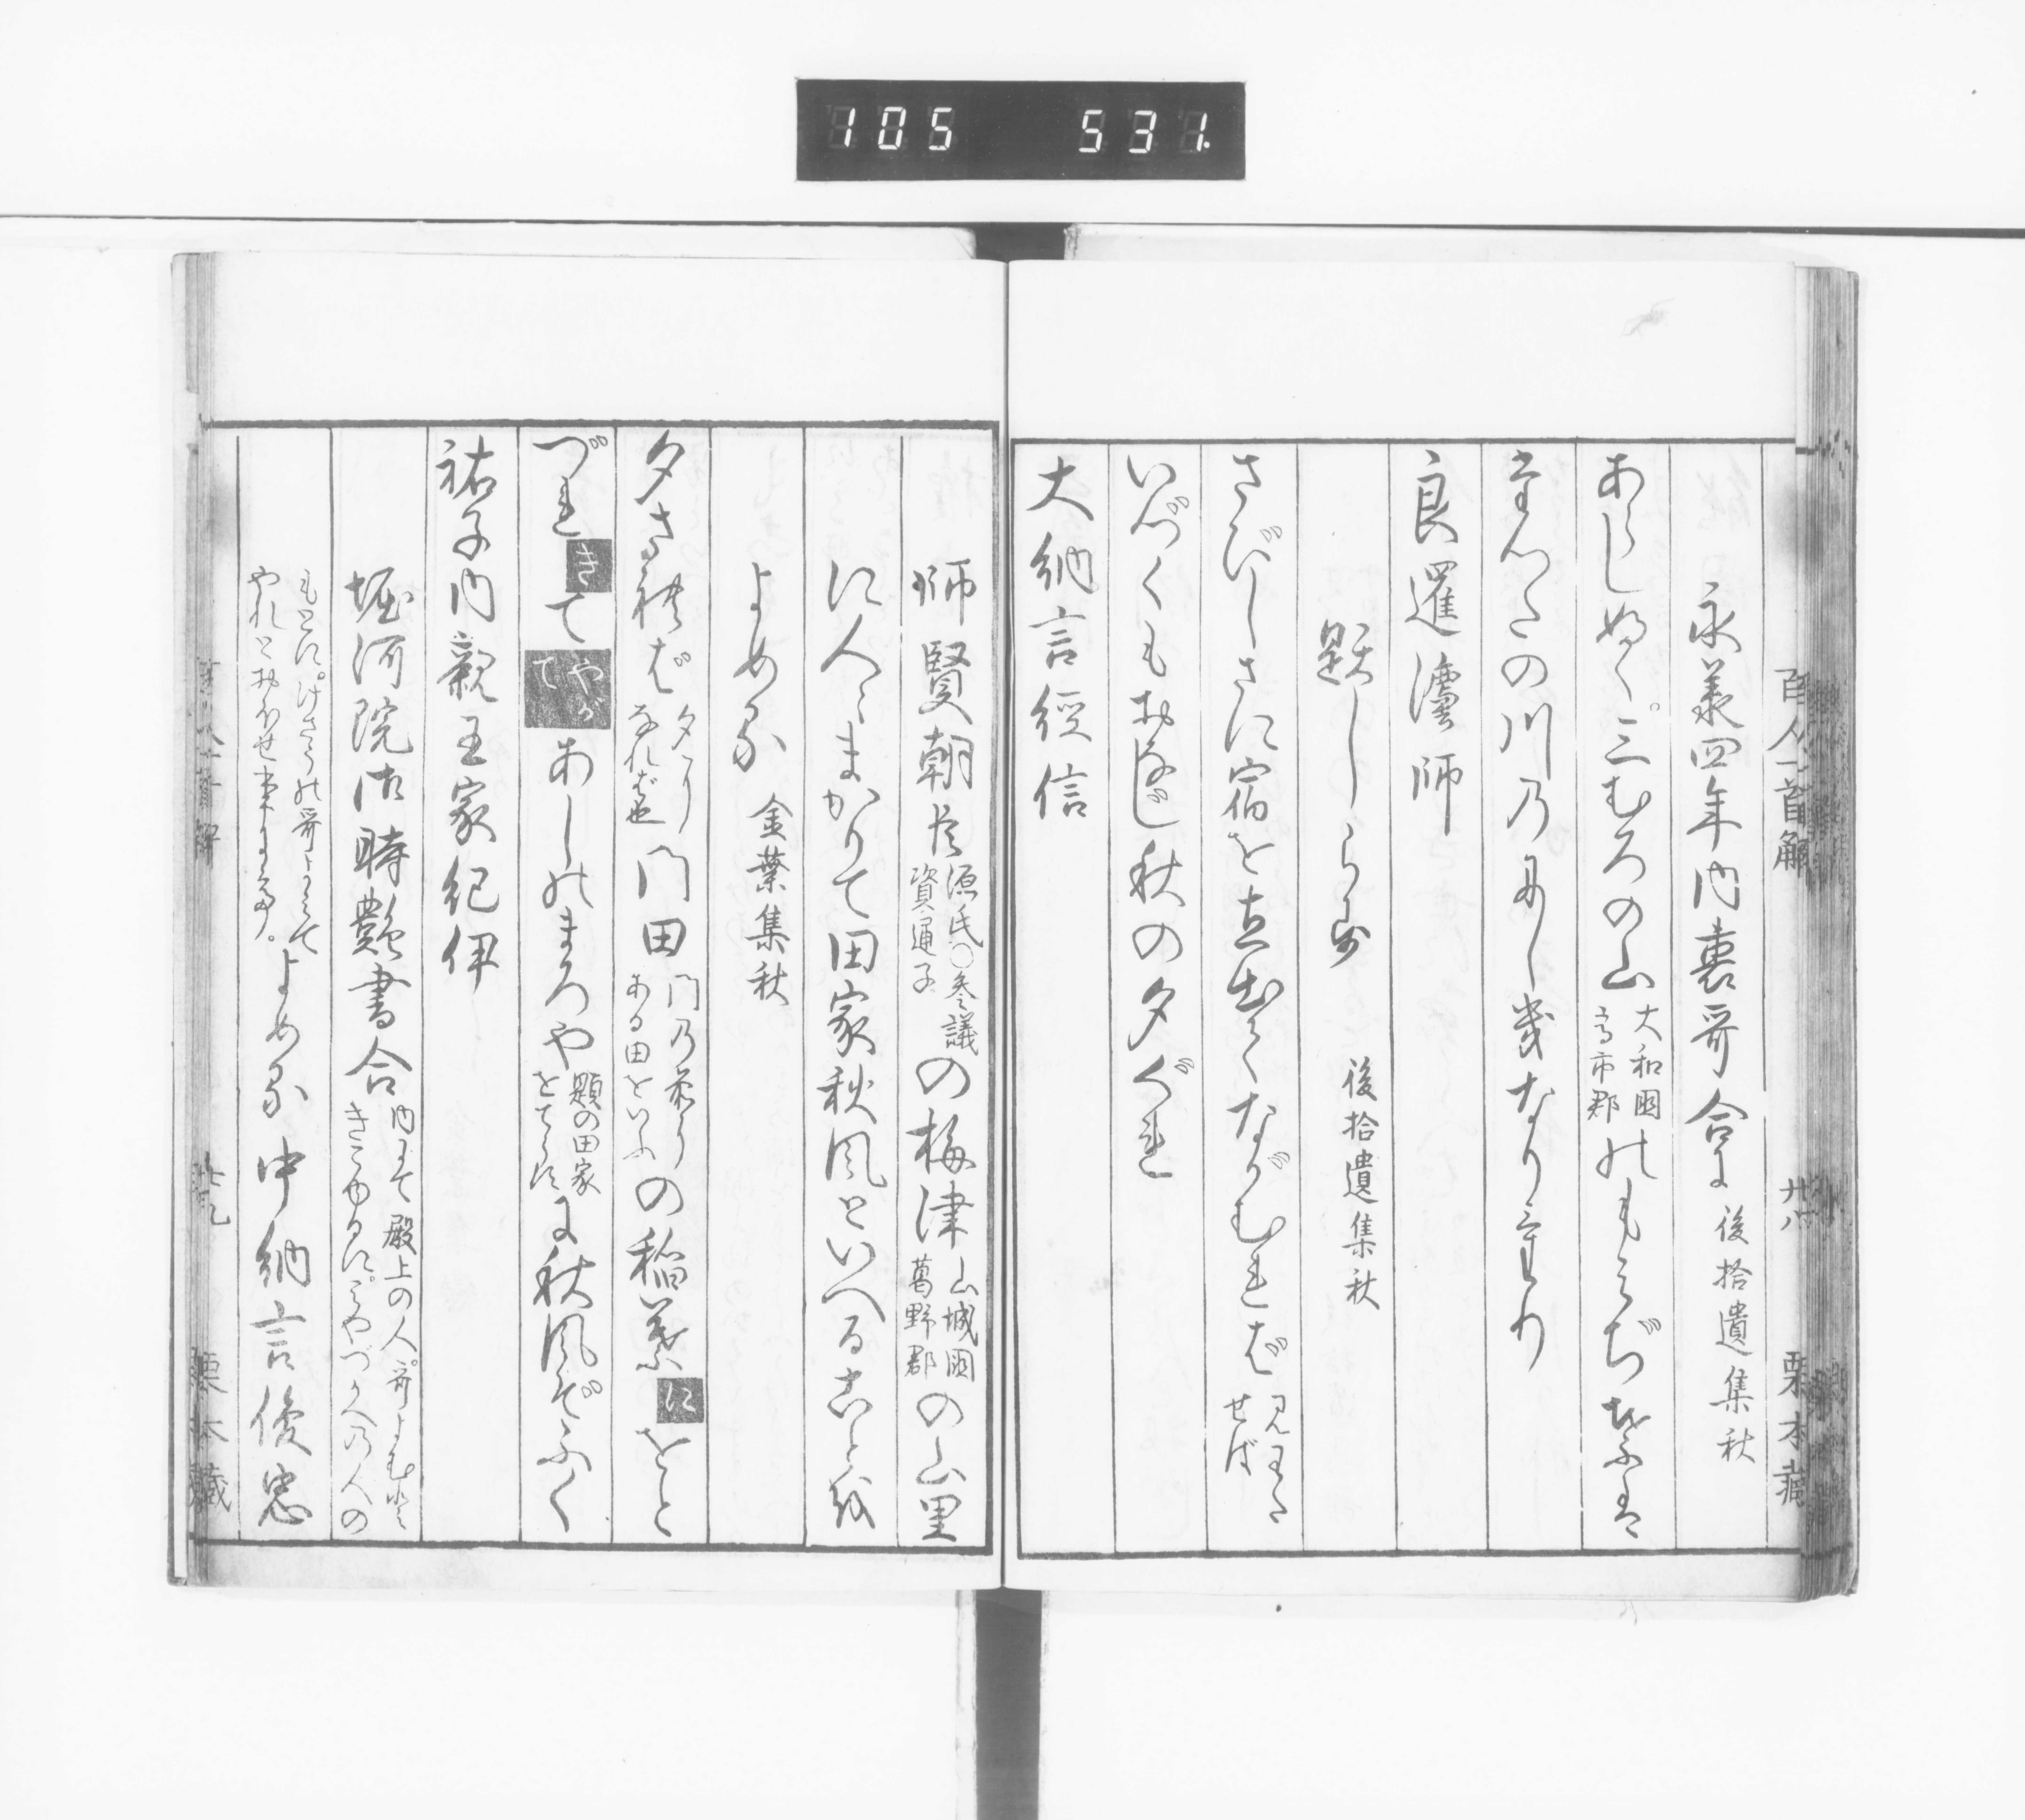 105 531.
百人一首解 廿八 栗本蔵
永義四年内裏哥合に 後拾遺集秋
あらしふく。三むろの山 大和國高市郡 のもみぢばは
たつたの川乃にしきなりけり
良暹法師
題しらず 後拾遺集秋
さびしさに宿を立出てながむれば 見わたせば
いづくもおなじ秋の夕ぐれ
大納言經信
師賢朝臣 源氏○参議資通子 の梅津 山城國葛野郡 の山里
に人々まかりて田家秋風といへることを
よめる 金葉集秋
夕されば 夕になれば也 門田 門乃前にある田をいふ の稲葉 に をと
づれ き て やがて あしのまろや 題の田家をてらす に秋風ぞふく
祐子内親王家紀伊
堀河院御時艶書合 内にて殿上の人。哥よむと きこゆるに。みやづかへの人の
もとに。けさうの哥よみて やれとおほせ事にて。 よめる 中納言俊忠
百人一首解 廿九 栗本蔵